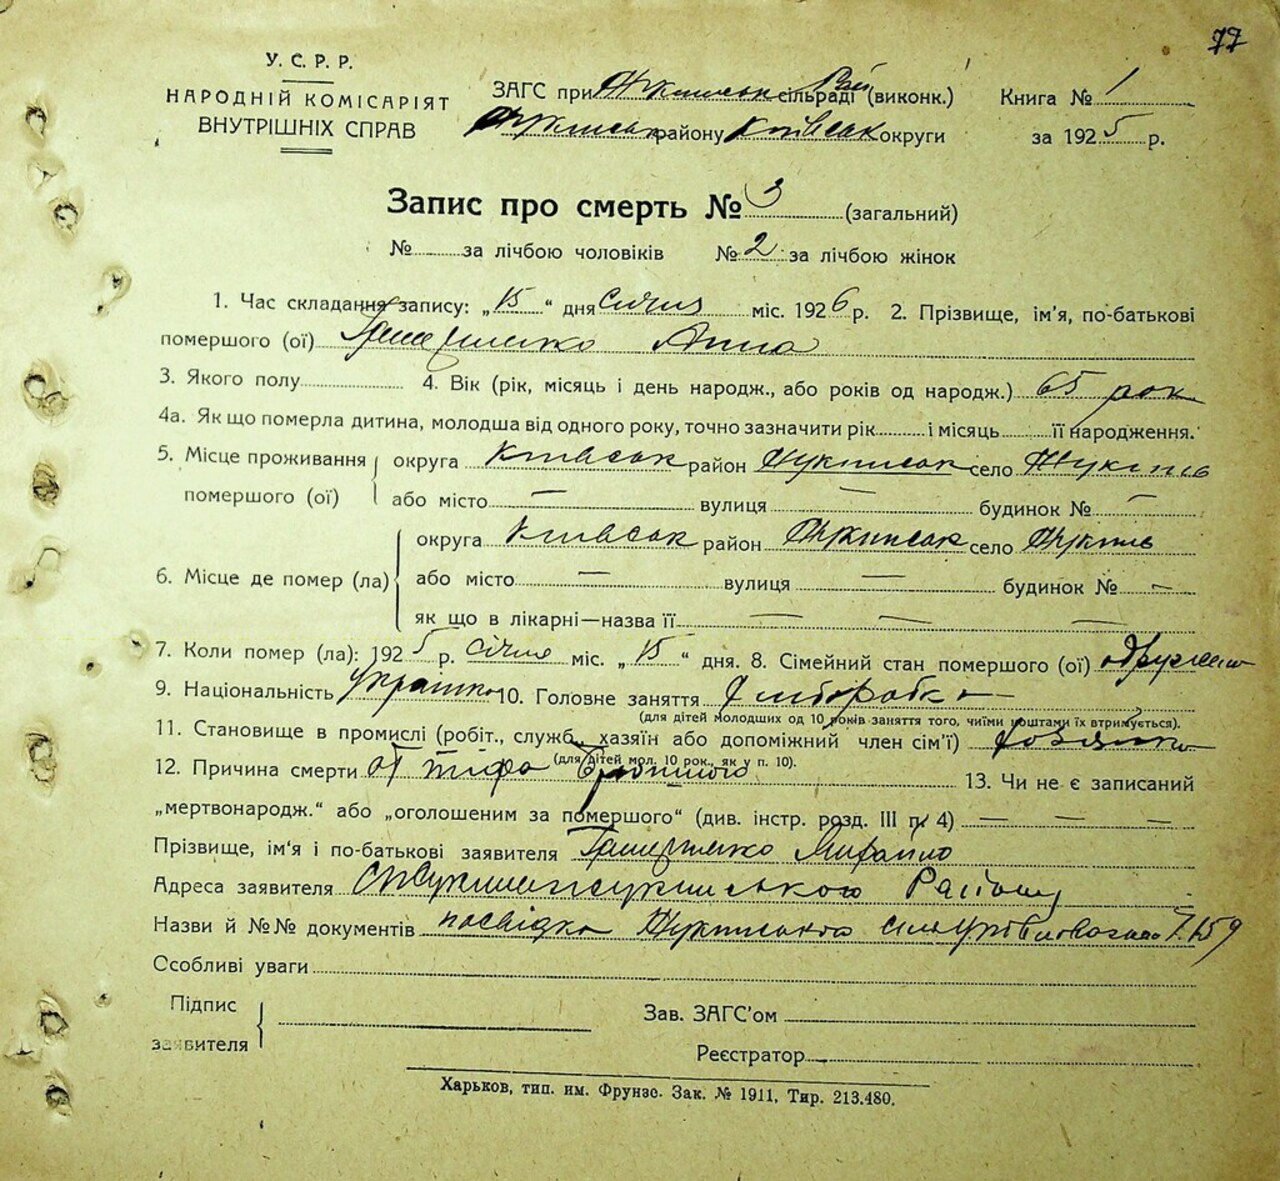 77
У. С. Р. Р.
НАРОДНІЙ КОМІСАРІЯТ
ВНУТРІШНІХ СПРАВ
ЗАГС при сільраді (виконк.)
району Київськ округи
Книга № 1
за 1925 р.
Запис про смерть № 3 (загальний)
№ за лічбою чоловіків № 2 за лічбою жінок
1. Час складання запису: „15“ дня Січня міс. 1926 р. 2. Прізвище, ім'я, по-батькові
помершого (ої) Анна
3. Якого полу 4. Вік (рік, місяць і день народж., або років од народж.) 65 рок
4а. Як що померла дитина, молодша від одного року, точно зазначити рік і місяць її народження.
5. Місце проживання округа Київськ район село
помершого (ої) або місто — вулиця — будинок № —
округа Київськ район село
6. Місце де помер (ла) або місто — вулиця — будинок № —
як що в лікарні—назва її — — —
7. Коли помер (ла): 1925 р. січня міс. „15“ дня. 8. Сімейний стан помершого (ої)
9. Національність 10. Головне заняття
(для дітей молодших од 10 років заняття того, чиїми коштами їх втримується).
11. Становище в промислі (робіт., служб., хазяїн або допоміжний член сім'ї)
(для дітей мол. 10 рок., як у п. 10).
12. Причина смерти от тифа 13. Чи не є записаний
„мертвонародж.“ або „оголошеним за помершого“ (див. інстр. розд. III п. 4) — — —
Прізвище, ім'я і по-батькові заявителя Михайло
Адреса заявителя Району
Назви й №№ документів посвідка
Особливі уваги
Підпис
заявителя
Зав. ЗАГС'ом
Реєстратор
Харьков, тип. им. Фрунзе. Зак. № 1911, Тир. 213.480.